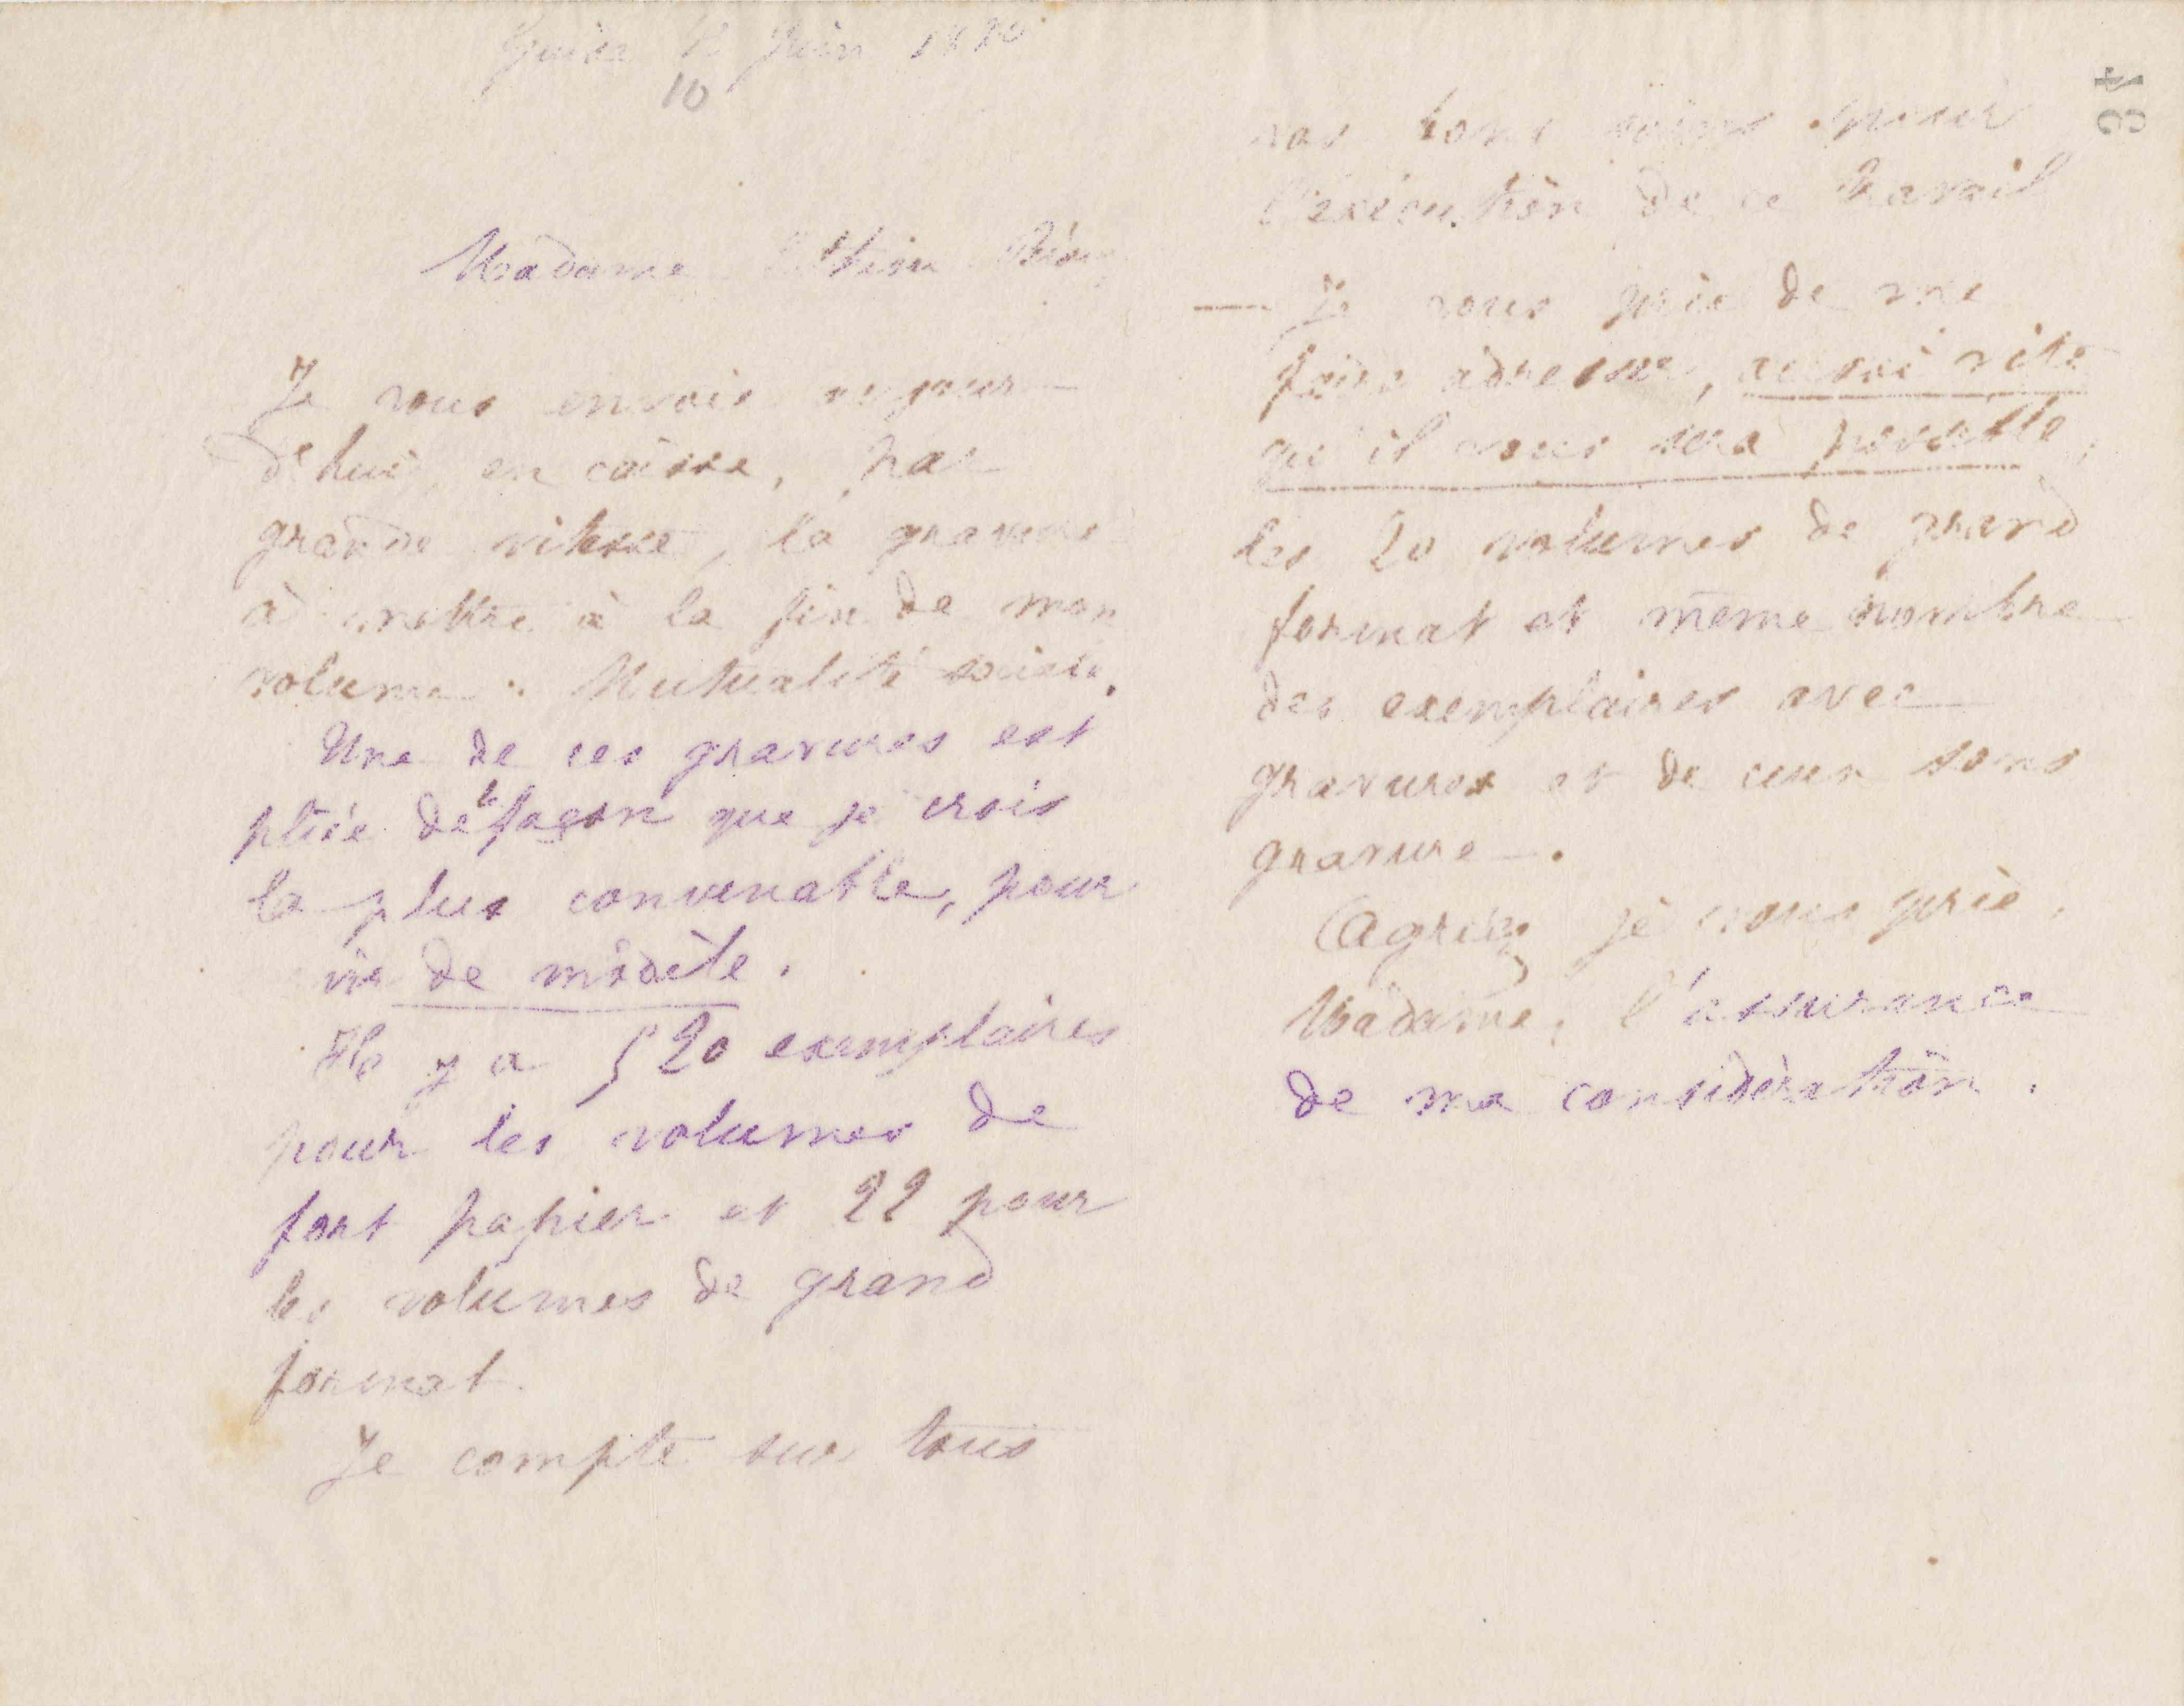 Guise 12 Juin 1880
10
Madame
Je vous envoie aujour-
d'hui, en caisse, par
grande vitesse, la gravure
à mettre à la fin de mon
volume : Mutualité sociale.
Une de ces gravures est
pliée de la façon que je crois
la plus convenable, pour
de modèle.
Il y a 520 exemplaires
pour les volumes de
fort papier et 22 pour
les volumes de grand
format.
Je compte sur tous
vos bons soins pour
l'exécution de ce travail
— Je vous prie de me
faire adresser, aussi vite
qu'il vous sera possible,
les 20 volumes de grand
format et même nombre
des exemplaires avec
gravures et de ceux sans
gravure.
Agréez je vous prie,
Madame, l'assurance
de ma considération.
34